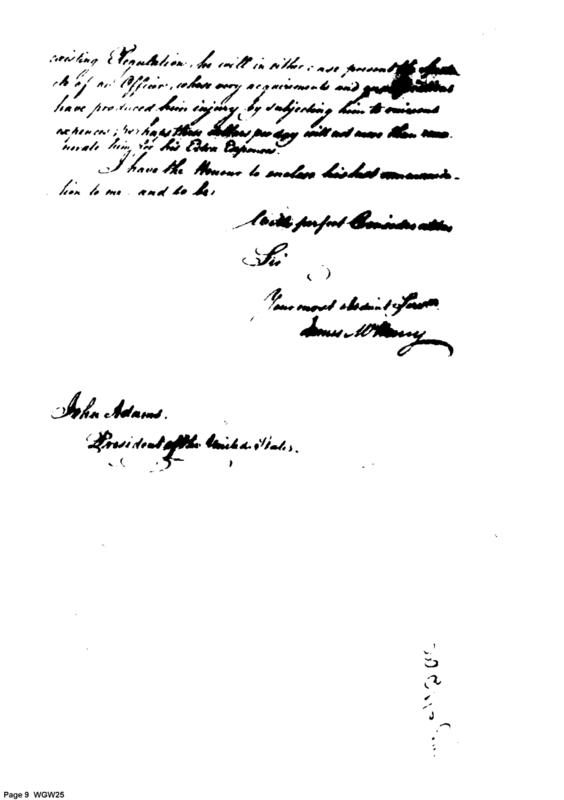 existing Regulation, he will in either case present the specta
cle of an Officer, whose very acquirements and qualifications
have produced him injury by subjecting him to
expences; perhaps three dollars per day will not more than remu
nerate him for his Extra Expences.
I have the Honour to enclose his last communica-
tion to me and to be,
With perfect Consideration
Sir
Your most obedient Servt.
James McHenry
John Adams.
President of the United States.
Page 9 WGW25